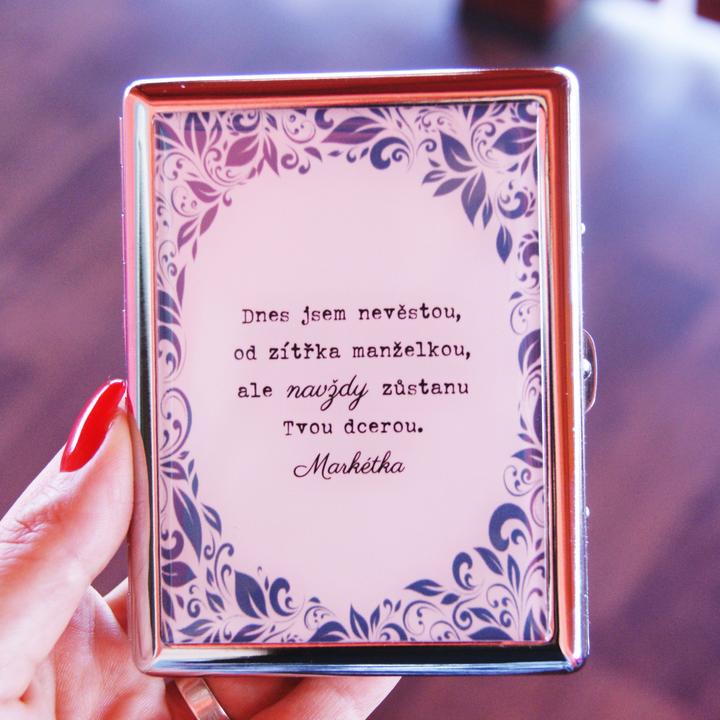 Dnes jsem nevěstou,
od zítřka manželkou,
ale navždy zůstanu
Tvou dcerou.
Markétka